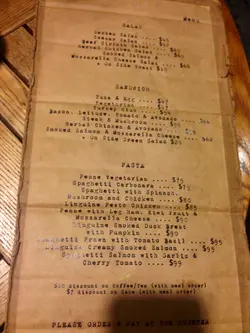 Menu
SALAD
Garden Salad .... $45
Caesar Salad .... $48
Beef Sirloin Salad ... $60
Herbed Chicken Salad ...
Smoked Salmon &
Mozzarella Cheese Salad .... $60
+ On Side Bread $10
SANDWICH
Tuna & Egg .... $47
Vegetarian ....
Bacon, Lettuce, Tomato & Avocado ....
Steak & Mushroom ....
Herbal Chicken & Avocado ....
Smoked Salmon & Mozzarella Cheese
+ On Side Green Salad $25
PASTA
Penne Vegetarian .... $75
Spaghetti Carbonara .... $75
Spaghetti with Spinach,
Mushroom and Chicken .... $80
Linguine Pesto Chicken .... $85
Penne with Leg Ham, Kiwi Fruit &
Mozzarella Cheese .... $90
Linguine Smoked Duck Breast
with Pumpkin .... $90
Spaghetti Prawn with Tomato Basil .... $95
Linguine Creamy Smoked Salmon .... $95
Spaghetti Salmon with Garlic &
Cherry Tomato .... $95
$10 discount on Coffee/Tea (with meal order)
$7 discount on Cake (with meal order)
PLEASE ORDER & PAY AT THE COUNTER